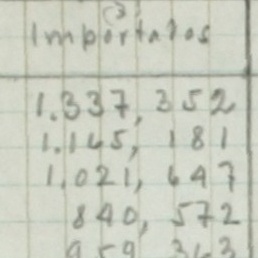 3
Importados
1.337,352
1.165,181
1.021,647
840,572
959,363